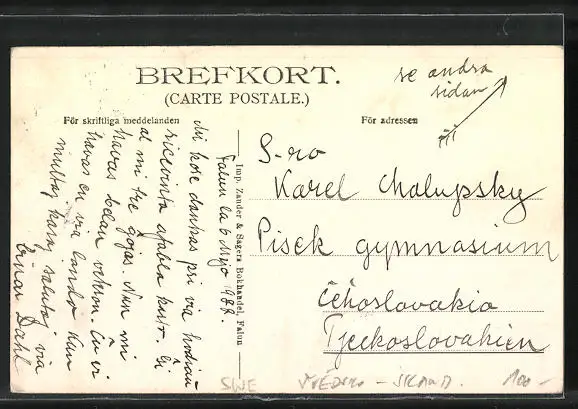 BREFKORT.
(CARTE POSTALE.)
För skriftliga meddelanden
För adressen
se andra
sidan
Imp. Zander & Sagers Bokhandel, Falun
Falun la 6 Majo
Mi kore dankas pri via hodiaŭ
ricevinta afabla karto. Ĝi
al mi tre ĝojas. Nun mi
havas belan veteron. Ĉu vi
havas en via lando kun
multaj karaj salutoj via
Einar Dahl
S-ro
Karel Chalupsky
Pisek gymnasium
Ĉehoslovakio
Tjeckoslovakien
SWE
100-